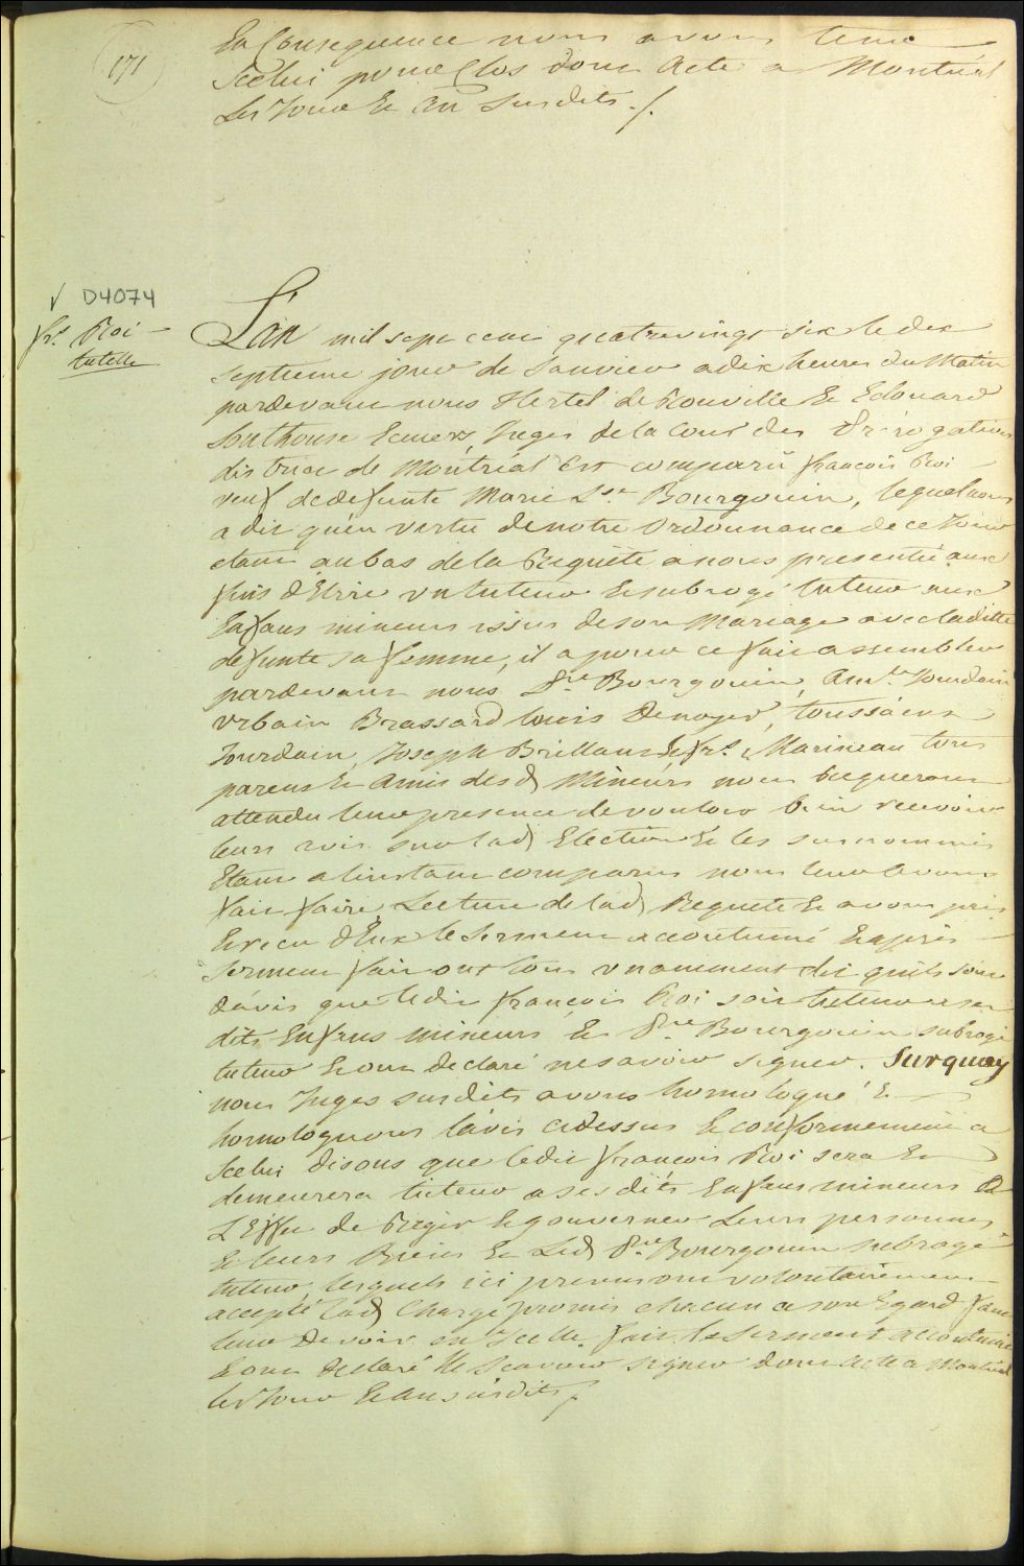 171
En Consequence nous avons tenu
Icelui pour Clos dont Acte a Montréal
Les Jour & An Susdits ./.
√ D4074
frs. Roi
tutelle
L'an mil sept cent quatrevingt six le dix
septieme jour de Janvier a dix heures du Matin
pardevant nous Hertel de Rouville & Edouard
Southouse Ecuiers Juges de la Cour des Prérogatives
district de Montréal Est comparû françois Roi
veuf de defunte Marie Bourgouin, lequel nous
a dit qu'en vertu de notre Ordonnance de ce Jour
etant au bas de la Requête a nous presentée aux
fins d'Elire un tuteur & subrogé tuteur aux
Enfans mineurs issus de son Mariage avec laditte
defunte sa femme, il a pour ce fait assembler
pardevant nous Bourgouin, Jourdain
Urbain Brassard louis Denoyer, toussaint
Jourdain, Joseph Brillant & frs. Marineau tous
parens & Amis desd Mineurs nous Requerant
attendu leur presence de vouloir bien recevoir
leurs avis sur lad Election & les surnommés
Etant a linstant comparus nous leur avons
fait faire Lecture de lad Requete & avons pris
& recu d'Eux le Serment accoutumé & après
serment fait ont tous unanimement dit quils sont
d'avis que ledit françois Roi soit tuteur a ses
dits Enfans mineurs & Bourgouin subrogé
tuteur & ont declaré ne savoir signer. Surquoy
nous Juges susdits avons homologué &
homologuons l'avis cidessus & conformement a
Icelui disons que ledit françois Roi sera &
demeurera tuteur a ses dits Enfans mineurs a
L'Effet de Regir & gouverner Leurs personnes
& leurs Biens & Led Bourgouin subrogé
tuteur, lesquels ici presens ont volontairement
accepté lad Charge promis chacun a son Egard faire
leur devoir en Icelle fait le serment accoutumé
& ont declaré Ne Scavoir signer dont acte a Montréal
les Jour & An susdits ./.